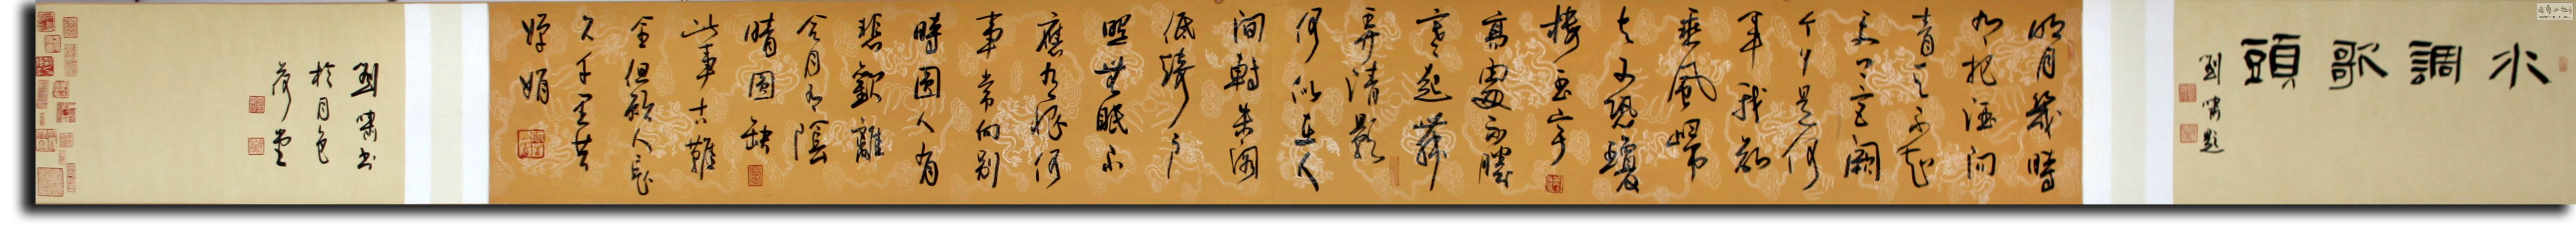 水調歌頭
劉嘯題
明月幾時
有把酒問
青天不知
天上宮闕
今夕是何
年我欲
乘風歸
去又恐瓊
樓玉宇
高處不勝
寒起舞
弄清影
何似在人
間轉朱閣
低綺戶
照無眠不
應有恨何
事常向別
時圓人有
悲歡離
合月有陰
晴圓缺
此事古難
全但願人長
久千里共
嬋娟
劉嘯書
於月色
荷堂